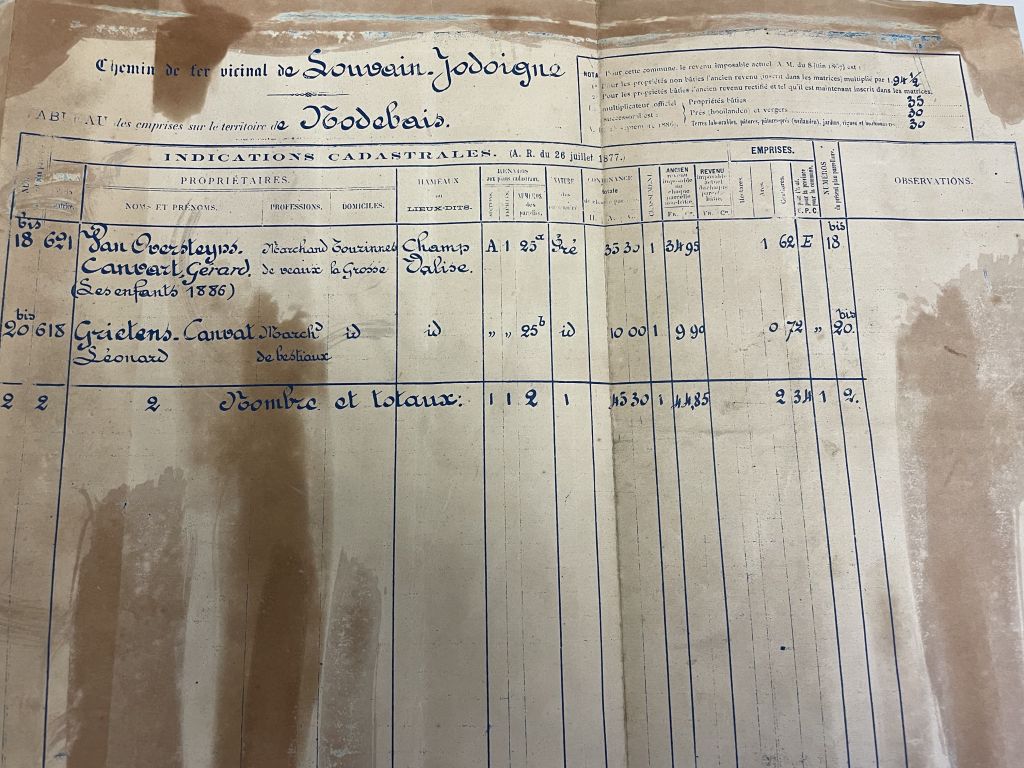 Chemin de fer vicinal de Louvain-Jodoigne
TABLEAU des emprises sur le territoire de Nodebais.
NOTA Pour cette commune, le revenu imposable actuel A. M. du 8 juin 1867) est :
1° Pour les propriétés non bâties l'ancien revenu (inscrit dans les matrices) multiplié par 1,94 1/2
2° Pour les propriétés bâties l'ancien revenu rectifié et tel qu'il est maintenant inscrit dans les matrices.
multiplicateur officiel
Propriétés bâties 35
successoral est :
Prés (houilandés) et vergers 30
1886
Terres labourables, pâtures, pâtures-prés jardins, vignes et 30
INDICATIONS CADASTRALES. (A. R. du 26 juillet 1877.)
EMPRISES.
PROPRIÉTAIRES.
HAMEAUX ou LIEUX-DITS.
RENVOIS aux plans cadastraux.
NATURE des
CONTENANCE totale de chaque parcelle
CLASSEMENT
ANCIEN revenu imposable
REVENU imposable actuel de chaque parcelle
NUMÉROS du présent plan parcellaire.
OBSERVATIONS.
NOMS ET PRÉNOMS.
PROFESSIONS.
DOMICILES.
SECTIONS.
NUMÉROS des parcelles.
H. A. C.
FR. CS.
FR. CS.
Hectares.
Ares.
Centiares.
E. P. C
bis bis
18 621 Van Oversteyns. Marchand Tourinnes Champ A 1 25a Pré 35 30 1 34 95 1 62 E 18
Canvart, Gérard. de veaux la Grosse Valise.
(Les enfants 1886)
bis bis
20 618 Grietens-Canvat March^d id id " " 25b id 10 00 1 9 90 0 72 " 20
Léonard de bestiaux
2 2 2 Nombre et totaux. 1 1 2 1 45 30 1 44,85 2 34 1 2.